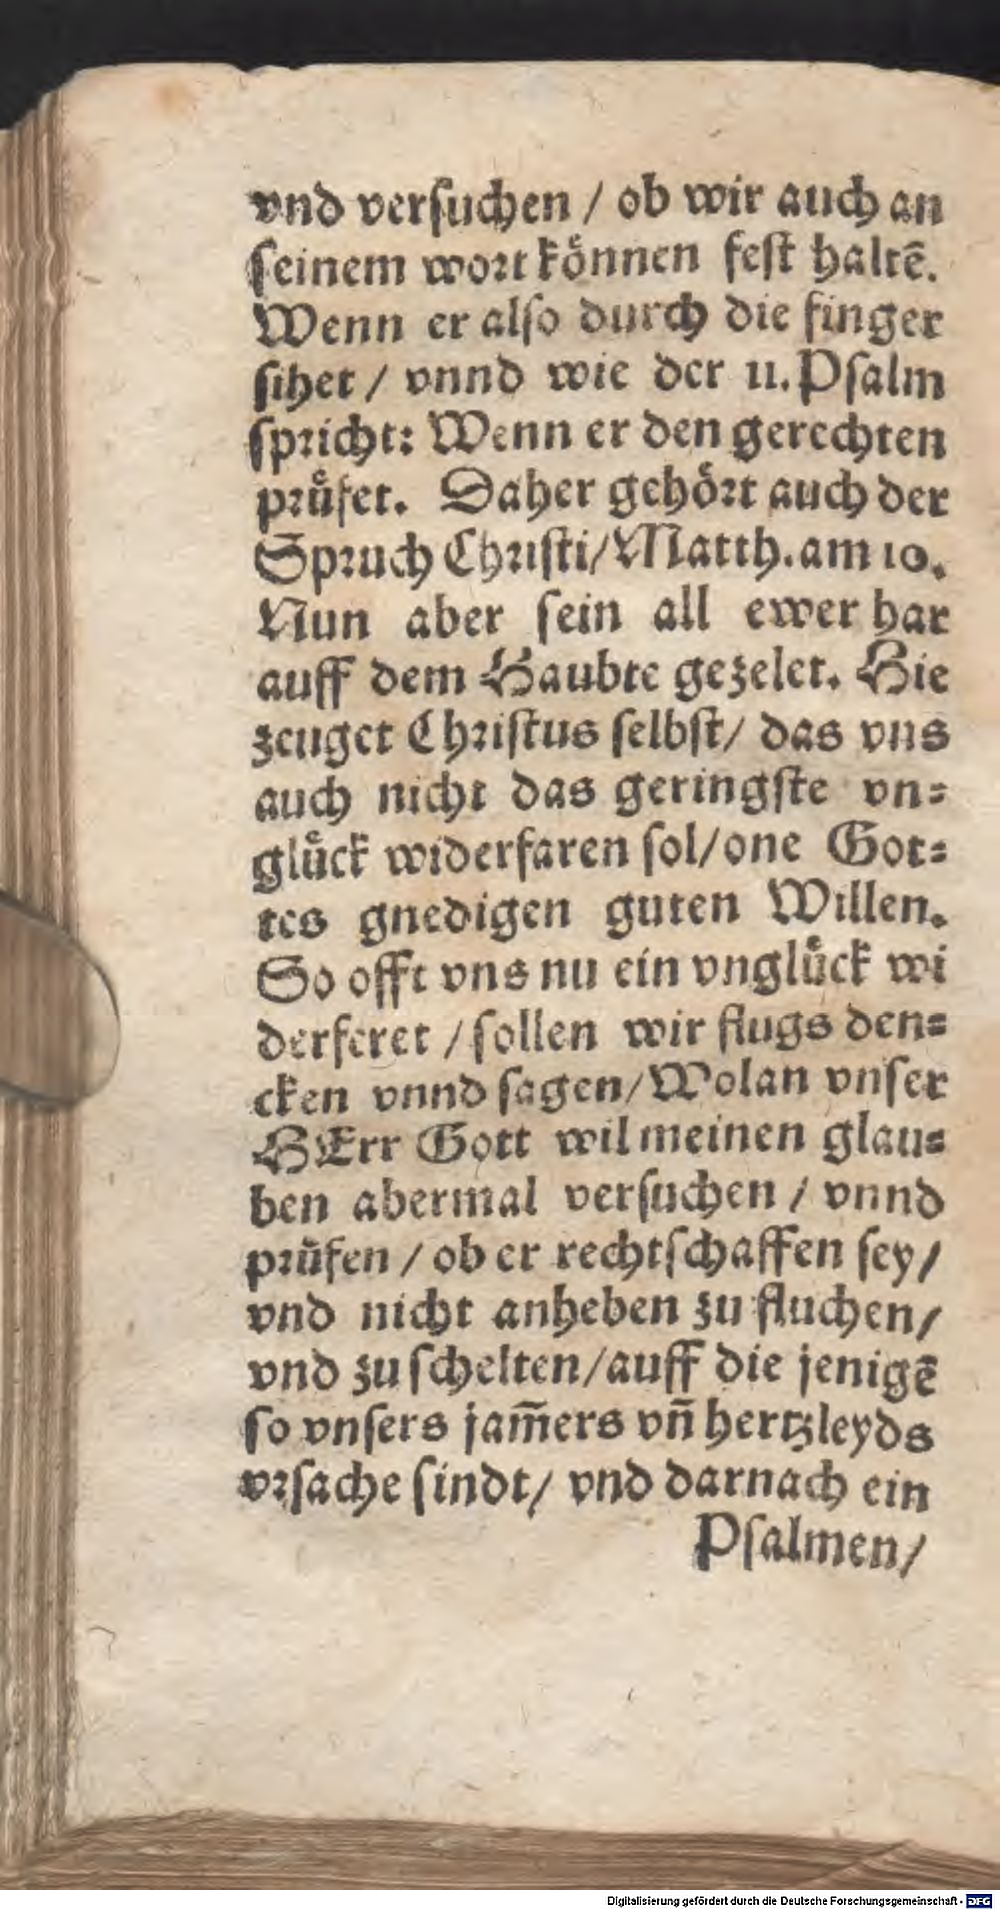 vnd verſuchen / ob wir auch an
ſeinem wort koͤnnen feſt haltē.
Wenn er alſo durch die finger
ſihet / vnnd wie der 11. Pſalm
ſpricht: Wenn er den gerechten
pruͤfet. Daher gehoͤrt auch der
Spruch Chriſti/ Matth. am 10.
Nun aber ſein all ewer har
auff dem Haubte gezelet. Hie
zeuget Chriſtus ſelbſt/ das vns
auch nicht das geringſte vn⸗
gluͤck widerfaren ſol/ one Got⸗
tes gnedigen guten Willen.
So offt vns nu ein vngluͤck wi
derferet / ſollen wir flugs den⸗
cken vnnd ſagen/ Wolan vnſer
HErr Gott wil meinen glau⸗
ben abermal verſuchen / vnnd
pruͤfen / ob er rechtſchaffen ſey/
vnd nicht anheben zu fluchen/
vnd zu ſchelten/ auff die jenigē
ſo vnſers jam̄ers vn̄ hertzleyds
vrſache ſindt/ vnd darnach ein
Pſalmen/
Digitalisierung gefördert durch die Deutsche Forschungsgemeinschaft - DFG